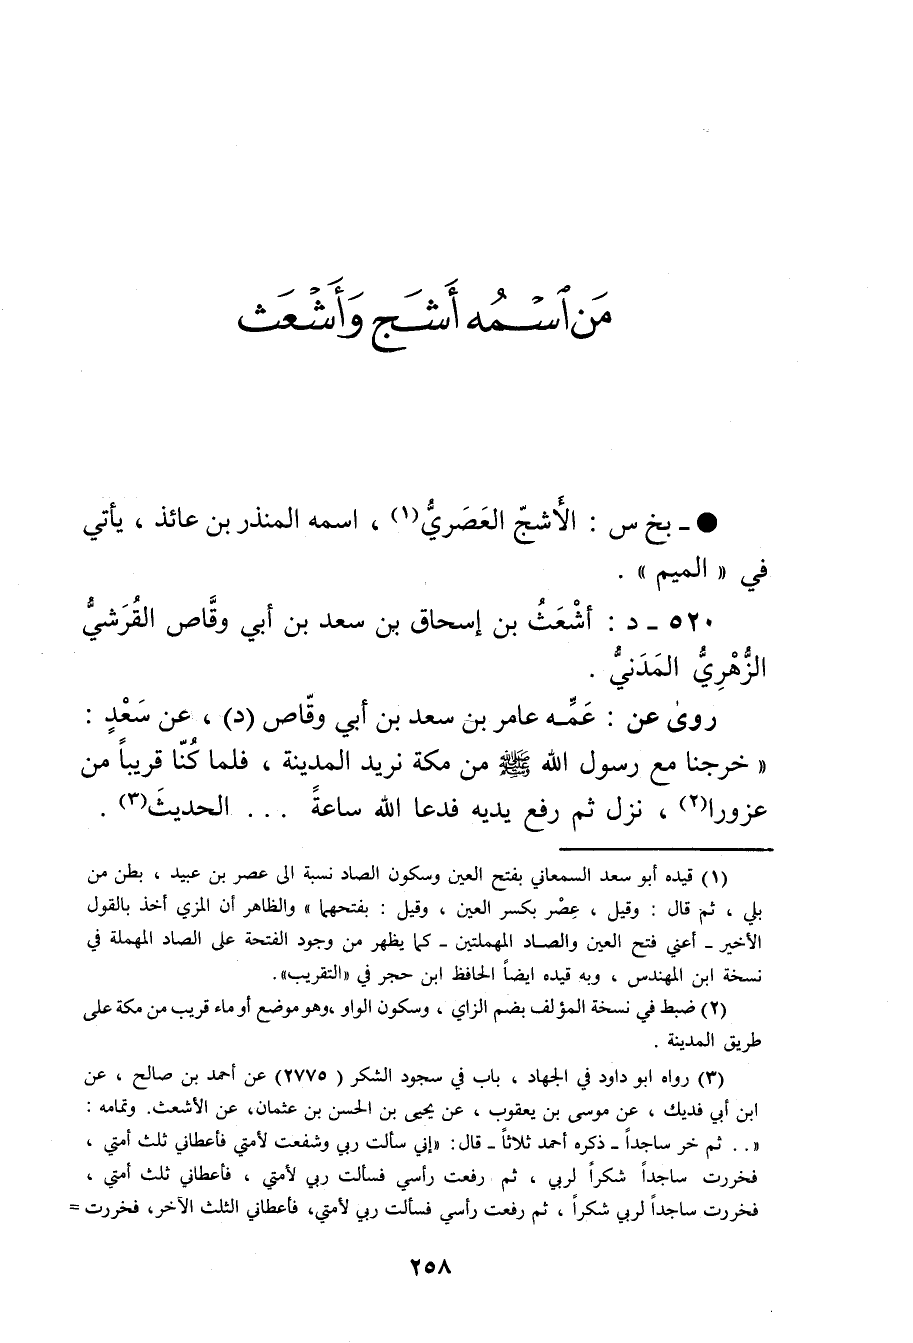 مَن ٱسْمُه أَشَج وَأَشْعَث
● ـ بخ س : الأَشجّ العَصَريُّ(١) ، اسمه المنذر بن عائذ ، يأتي
في « الميم » .
٥٢٠ ـ د : أشْعَثُ بن إسحاق بن سعد بن أبي وقَّاص القُرَشيُّ
الزُّهْرِيُّ المَدَنيُّ .
روىٰ عن : عَمِّـه عامر بن سعد بن أبي وقّاص (د) ، عن سَعْدٍ :
« خرجنا مع رسول الله ﷺ من مكة نريد المدينة ، فلما كُنّا قريباً من
عزورا(٢) ، نزل ثم رفع يديه فدعا الله ساعةً ... الحديثَ(٣) .
(١) قيده أبو سعد السمعاني بفتح العين وسكون الصاد نسبة الى عصر بن عبيد ، بطن من
بلي ، ثم قال : وقيل ، عِصْر بكسر العين ، وقيل : بفتحهما » والظاهر أن المزي أخذ بالقول
الأخير ـ أعني فتح العين والصـاد المهملتين ـ كما يظهر من وجود الفتحة على الصاد المهملة في
نسخة ابن المهندس ، وبه قيده ايضاً الحافظ ابن حجر في «التقريب».
(٢) ضبط في نسخة المؤلف بضم الزاي ، وسكون الواو ،وهو موضع أو ماء قريب من مكة على
طريق المدينة .
(٣) رواه ابو داود في الجهاد ، باب في سجود الشكر ( ٢٧٧٥) عن أحمد بن صالح ، عن
ابن أبي فديك ، عن موسى بن يعقوب ، عن يحيى بن الحسن بن عثمان، عن الأشعث. وتمامه :
«.. ثم خر ساجداً ـ ذكره أحمد ثلاثاً ـ قال: «إني سألت ربي وشفعت لأمتي فأعطاني ثلث أمتي ،
فخررت ساجداً شكراً لربي ، ثم رفعت رأسي فسألت ربي لأمتي ، فأعطاني ثلث أمتي ،
فخررت ساجداً لربي شكراً ، ثم رفعت رأسي فسألت ربي لأمتي، فأعطاني الثلث الآخر، فخررت =
٢٥٨